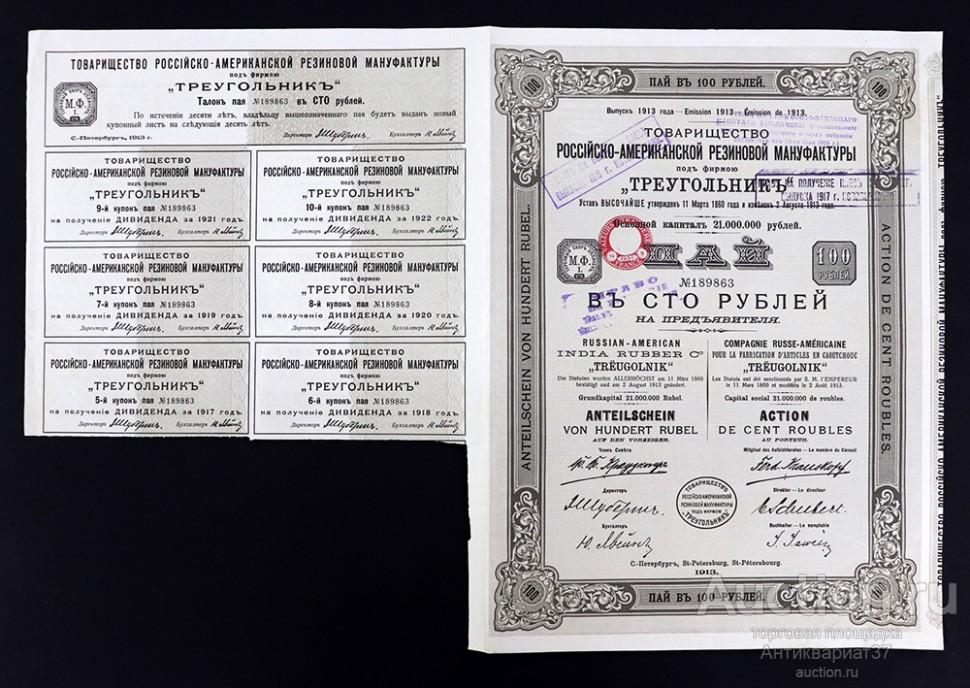 ТОВАРИЩЕСТВО РОССІЙСКО-АМЕРИКАНСКОЙ РЕЗИНОВОЙ МАНУФАКТУРЫ
подъ фирмою
„ТРЕУГОЛЬНИКЪ“
М.Ф.
Талонъ пая №189863 въ СТО рублей.
По истеченіи десяти лѣтъ, владѣльцу вышеозначеннаго пая будетъ выданъ новый
купонный листъ на слѣдующія десять лѣтъ.
С.-Петербургъ, 1913 г.
Директоръ
Бухгалтеръ
ТОВАРИЩЕСТВО
РОССІЙСКО-АМЕРИКАНСКОЙ РЕЗИНОВОЙ МАНУФАКТУРЫ
подъ фирмою
„ТРЕУГОЛЬНИКЪ“
9-й купонъ пая №189863
на полученіе ДИВИДЕНДА за 1921 годъ.
Директоръ
Бухгалтеръ
ТОВАРИЩЕСТВО
РОССІЙСКО-АМЕРИКАНСКОЙ РЕЗИНОВОЙ МАНУФАКТУРЫ
подъ фирмою
„ТРЕУГОЛЬНИКЪ“
10-й купонъ пая №189863
на полученіе ДИВИДЕНДА за 1922 годъ.
Директоръ
Бухгалтеръ
ТОВАРИЩЕСТВО
РОССІЙСКО-АМЕРИКАНСКОЙ РЕЗИНОВОЙ МАНУФАКТУРЫ
подъ фирмою
„ТРЕУГОЛЬНИКЪ“
7-й купонъ пая №189863
на полученіе ДИВИДЕНДА за 1919 годъ.
Директоръ
Бухгалтеръ
ТОВАРИЩЕСТВО
РОССІЙСКО-АМЕРИКАНСКОЙ РЕЗИНОВОЙ МАНУФАКТУРЫ
подъ фирмою
„ТРЕУГОЛЬНИКЪ“
8-й купонъ пая №189863
на полученіе ДИВИДЕНДА за 1920 годъ.
Директоръ
Бухгалтеръ
ТОВАРИЩЕСТВО
РОССІЙСКО-АМЕРИКАНСКОЙ РЕЗИНОВОЙ МАНУФАКТУРЫ
подъ фирмою
„ТРЕУГОЛЬНИКЪ“
5-й купонъ пая №189863
на полученіе ДИВИДЕНДА за 1917 годъ.
Директоръ
Бухгалтеръ
ТОВАРИЩЕСТВО
РОССІЙСКО-АМЕРИКАНСКОЙ РЕЗИНОВОЙ МАНУФАКТУРЫ
подъ фирмою
„ТРЕУГОЛЬНИКЪ“
6-й купонъ пая №189863
на полученіе ДИВИДЕНДА за 1918 годъ.
Директоръ
Бухгалтеръ
100
ПАЙ ВЪ 100 РУБЛЕЙ.
100
Выпускъ 1913 года — Emission 1913 — Émission de 1913.
ТОВАРИЩЕСТВО
РОССІЙСКО-АМЕРИКАНСКОЙ РЕЗИНОВОЙ МАНУФАКТУРЫ
подъ фирмою
„ТРЕУГОЛЬНИКЪ“
НА ПОЛУЧЕНІЕ
ВЫПУСКА 1917 г.
Уставъ ВЫСОЧАЙШЕ утвержденъ 11 Марта 1860 года и измѣненъ 2 Августа 1913 года.
Основной капиталъ 21.000.000 рублей.
М.Ф.
ПАЙ
100
РУБЛЕЙ.
№189863
ВЪ СТО РУБЛЕЙ
НА ПРЕДЪЯВИТЕЛЯ.
RUSSIAN-AMERICAN
INDIA RUBBER Cº
„TRĒUGOLNIK“
Die Statuten wurden ALLERHÖCHST am 11 März 1860
bestätigt und am 2 August 1913 geändert.
Grundkapital 21.000.000 Rubel.
ANTEILSCHEIN
VON HUNDERT RUBEL
AUF DEN VORZEIGER.
COMPAGNIE RUSSE-AMÉRICAINE
POUR LA FABRICATION D'ARTICLES EN CAOUTCHOUC
„TRĒUGOLNIK“
Les Statuts ont été sanctionnés par S. M. l'EMPEREUR
le 11 Mars 1860 et modifiés le 2 Août 1913.
Capital social 21.000.000 de roubles.
ACTION
DE CENT ROUBLES
AU PORTEUR.
Членъ Совѣта
Mitglied des Aufsichtsrates — Le membre du Conseil
Директоръ
Direktor — Le directeur
ТОВАРИЩЕСТВО
РОССІЙСКО-АМЕРИКАНСКОЙ
РЕЗИНОВОЙ МАНУФАКТУРЫ
ПОДЪ ФИРМОЮ
„ТРЕУГОЛЬНИКЪ“
Schubert.
Бухгалтеръ
Buchhalter — Le comptable
С.-Петербургъ, St-Petersburg, St-Pétersbourg.
1913.
100
ПАЙ ВЪ 100 РУБЛЕЙ.
100
ANTEILSCHEIN VON HUNDERT RUBEL.
ACTION DE CENT ROUBLES.
Auction.ru
торговая площадка
Антиквариат37
auction.ru